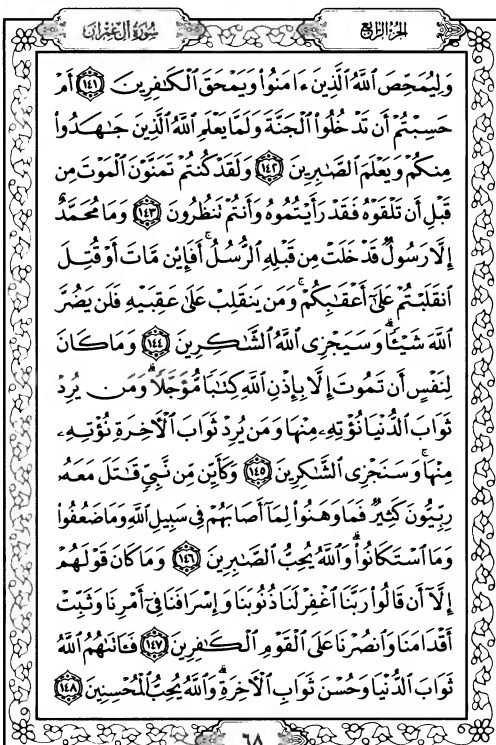 سُورَةُ آلِ عِمْرَانَ
الجُزْءُ الرَّابِعُ
وَلِيُمَحِّصَ ٱللَّهُ ٱلَّذِينَ ءَامَنُوا۟ وَيَمْحَقَ ٱلْكَـٰفِرِينَ ١٤١ أَمْ
حَسِبْتُمْ أَن تَدْخُلُوا۟ ٱلْجَنَّةَ وَلَمَّا يَعْلَمِ ٱللَّهُ ٱلَّذِينَ جَـٰهَدُوا۟
مِنكُمْ وَيَعْلَمَ ٱلصَّـٰبِرِينَ ١٤٢ وَلَقَدْ كُنتُمْ تَمَنَّوْنَ ٱلْمَوْتَ مِن
قَبْلِ أَن تَلْقَوْهُ فَقَدْ رَأَيْتُمُوهُ وَأَنتُمْ تَنظُرُونَ ١٤٣ وَمَا مُحَمَّدٌ
إِلَّا رَسُولٌ قَدْ خَلَتْ مِن قَبْلِهِ ٱلرُّسُلُ ۚ أَفَإِي۟ن مَّاتَ أَوْ قُتِلَ
ٱنقَلَبْتُمْ عَلَىٰٓ أَعْقَـٰبِكُمْ ۚ وَمَن يَنقَلِبْ عَلَىٰ عَقِبَيْهِ فَلَن يَضُرَّ
ٱللَّهَ شَيْـًٔا ۗ وَسَيَجْزِى ٱللَّهُ ٱلشَّـٰكِرِينَ ١٤٤ وَمَا كَانَ
لِنَفْسٍ أَن تَمُوتَ إِلَّا بِإِذْنِ ٱللَّهِ كِتَـٰبًا مُّؤَجَّلًا ۗ وَمَن يُرِدْ
ثَوَابَ ٱلدُّنْيَا نُؤْتِهِۦ مِنْهَا وَمَن يُرِدْ ثَوَابَ ٱلْـَٔاخِرَةِ نُؤْتِهِۦ
مِنْهَا ۚ وَسَنَجْزِى ٱلشَّـٰكِرِينَ ١٤٥ وَكَأَيِّن مِّن نَّبِىٍّ قَـٰتَلَ مَعَهُۥ
رِبِّيُّونَ كَثِيرٌ فَمَا وَهَنُوا۟ لِمَآ أَصَابَهُمْ فِى سَبِيلِ ٱللَّهِ وَمَا ضَعُفُوا۟
وَمَا ٱسْتَكَانُوا۟ ۗ وَٱللَّهُ يُحِبُّ ٱلصَّـٰبِرِينَ ١٤٦ وَمَا كَانَ قَوْلَهُمْ
إِلَّآ أَن قَالُوا۟ رَبَّنَا ٱغْفِرْ لَنَا ذُنُوبَنَا وَإِسْرَافَنَا فِىٓ أَمْرِنَا وَثَبِّتْ
أَقْدَامَنَا وَٱنصُرْنَا عَلَى ٱلْقَوْمِ ٱلْكَـٰفِرِينَ ١٤٧ فَـَٔاتَىٰهُمُ ٱللَّهُ
ثَوَابَ ٱلدُّنْيَا وَحُسْنَ ثَوَابِ ٱلْـَٔاخِرَةِ ۗ وَٱللَّهُ يُحِبُّ ٱلْمُحْسِنِينَ ١٤٨
٦٨